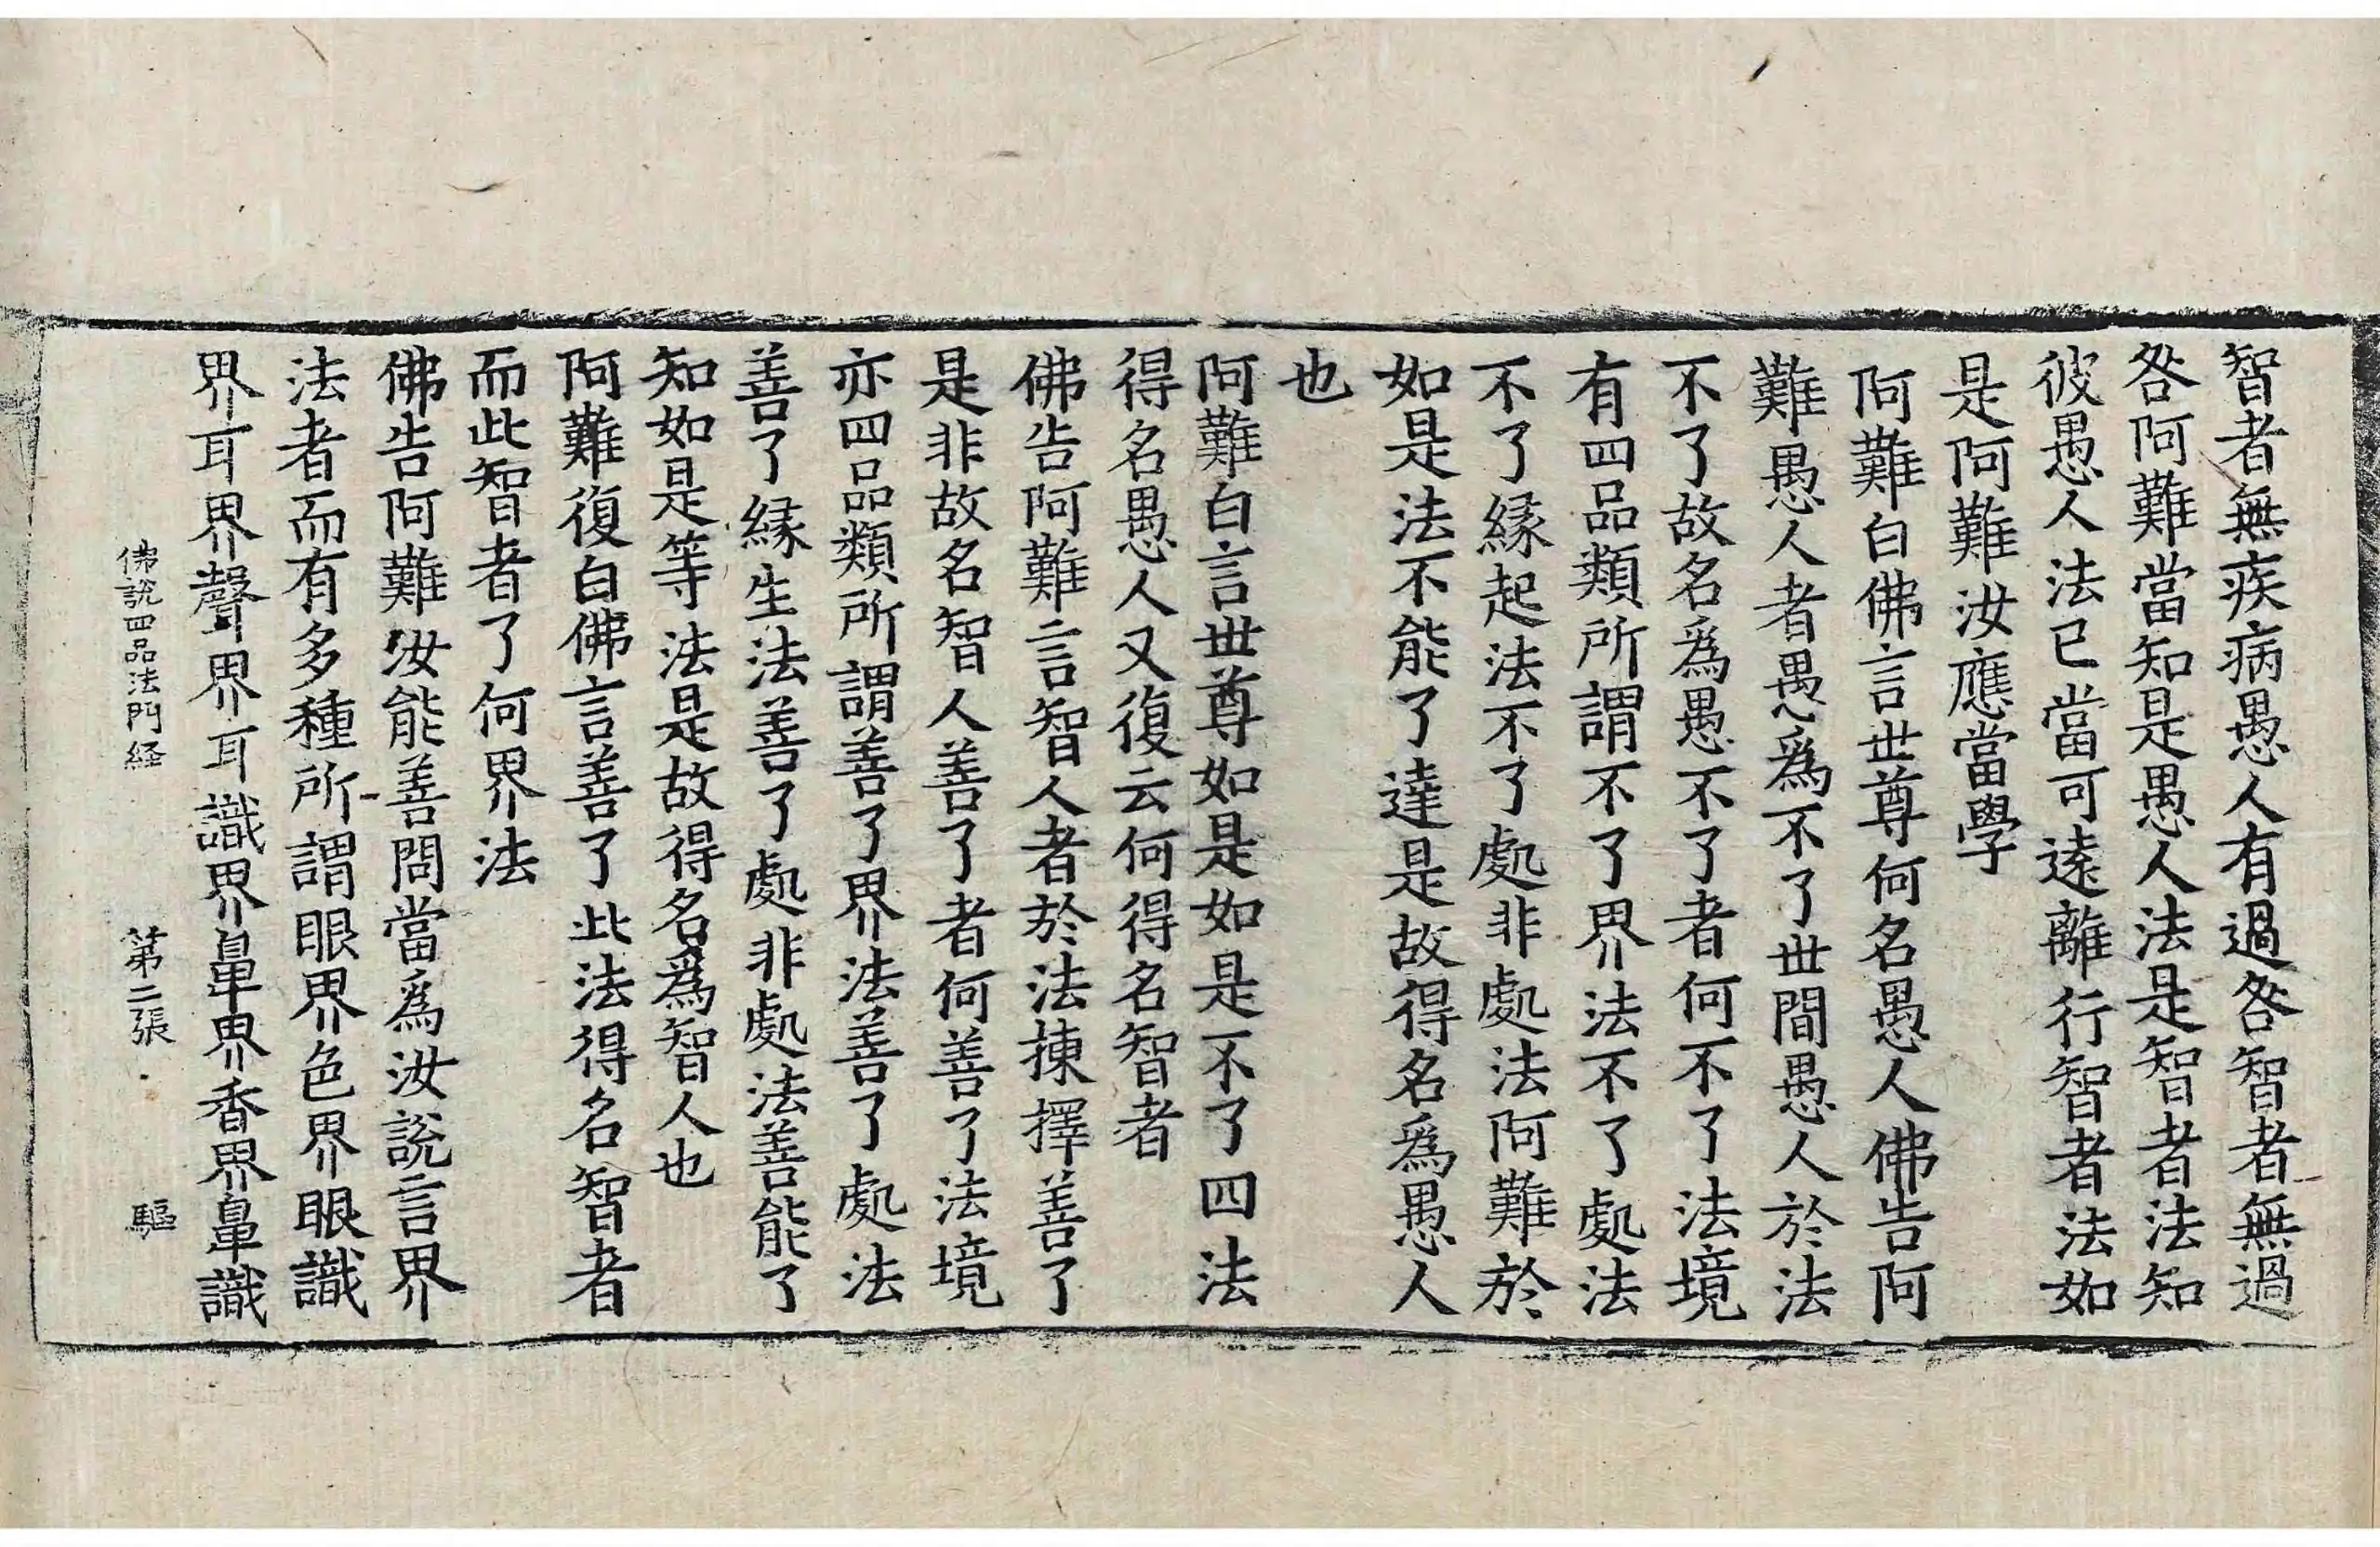 智者無疾病愚人有過咎智者無過
咎阿難當知是愚人法是智者法知
彼愚人法已當可遠離行智者法如
是阿難汝應當學
阿難白佛言世尊何名愚人佛告阿
難愚人者愚爲不了世間愚人於法
不了故名爲愚不了者何不了法境
有四品類所謂不了界法不了處法
不了縁起法不了處非處法阿難於
如是法不能了達是故得名爲愚人
也
阿難白言世尊如是如是不了四法
得名愚人又復云何得名智者
佛告阿難言智人者於法揀擇善了
是非故名智人善了者何善了法境
亦四品類所謂善了界法善了處法
善了縁生法善了處非處法善能了
知如是等法是故得名爲智人也
阿難復白佛言善了此法得名智者
而此智者了何界法
佛告阿難汝能善問當爲汝說言界
法者而有多種所謂眼界色界眼識
界耳界聲界耳識界鼻界香界鼻識
佛說四品法門経 第二張 驅